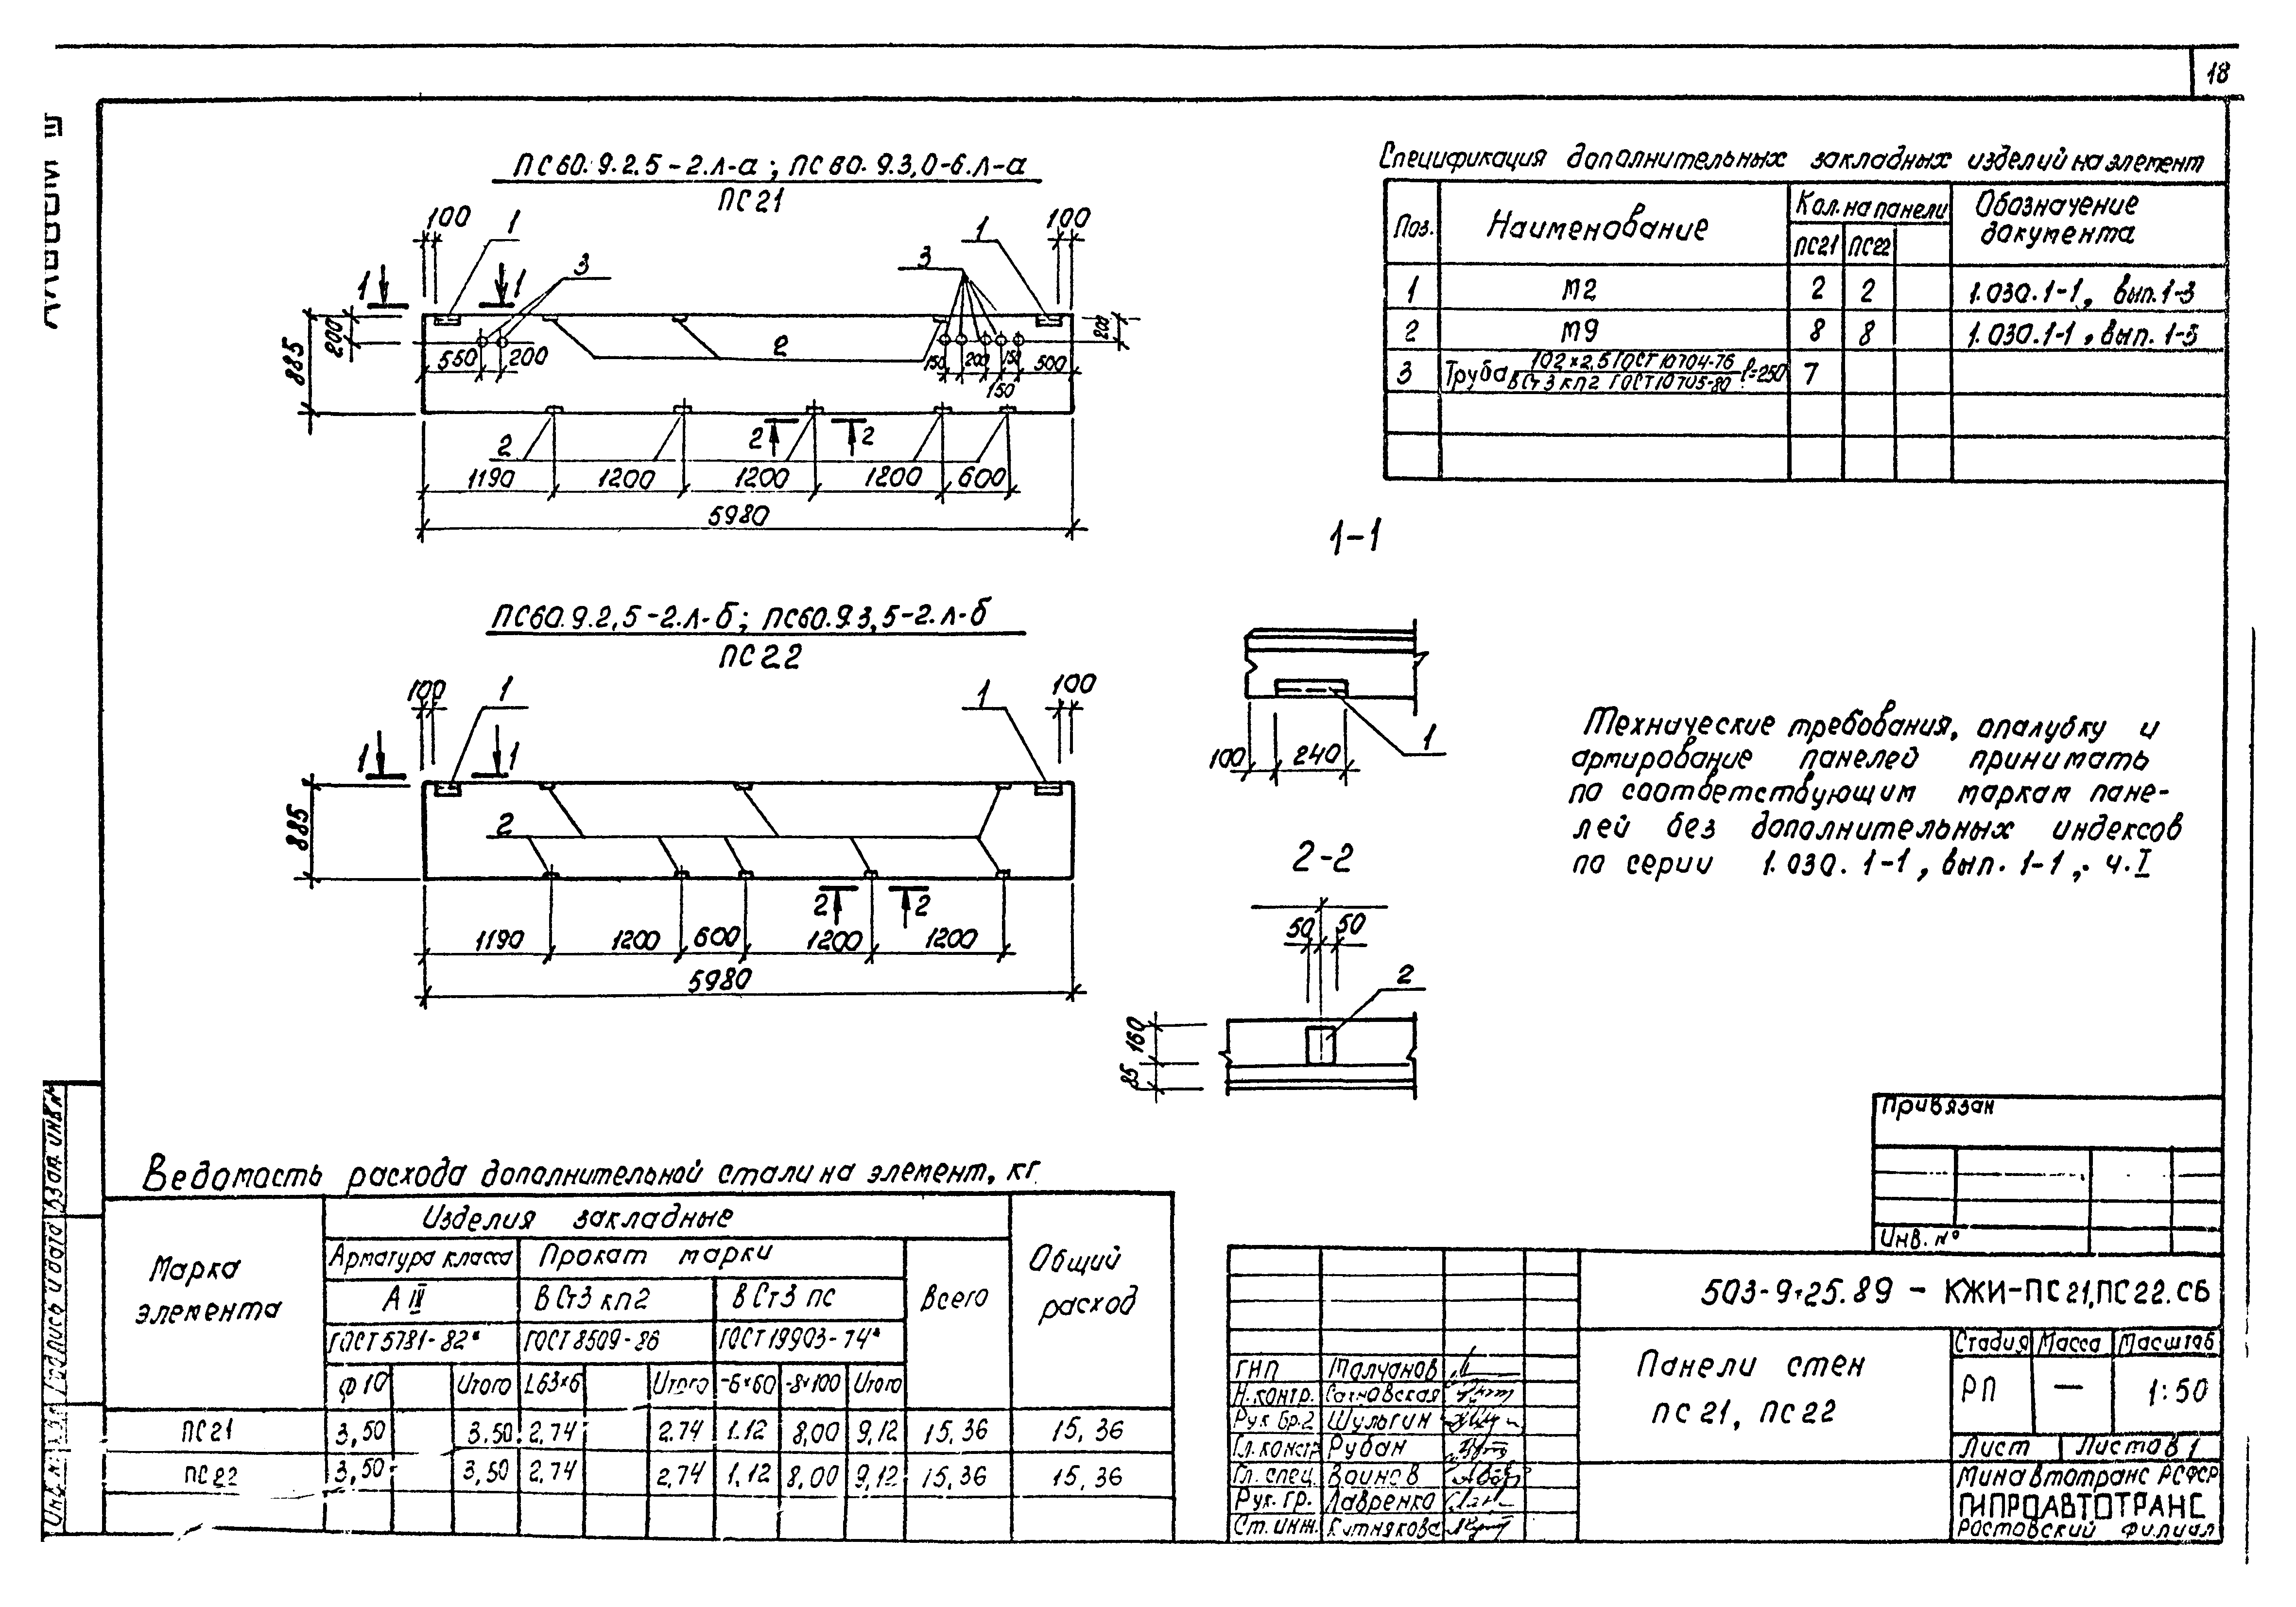 18
АЛЬБОМ III
ПС60.9.2.5-2.Л-а; ПС60.9.3,0-6.Л-а
ПС21
100 1 1 100
1 1 3 3
885 200 550 200 2 150 200 150 150 500 200
2 2 2
1190 1200 1200 1200 600
5980
ПС60.9.2,5-2.Л-б; ПС60.9.3,5-2.Л-б
ПС22
100 1 1 100
1 1
885 2
2 2
1190 1200 600 1200 1200
5980
Спецификация дополнительных закладных изделий на элемент
Поз. Наименование Кол. на панели Обозначение документа
ПС21 ПС22
1 М2 2 2 1.030.1-1, вып. 1-3
2 М9 8 8 1.030.1-1, вып. 1-3
3 Труба 102×2,5 ГОСТ 10704-76 ВСт3 кп2 ГОСТ 10705-80 ℓ=250 7
1-1
100 240 1
2-2
50 50
2
160
85
Технические требования, опалубку и
армирование панелей принимать
по соответствующим маркам пане-
лей без дополнительных индексов
по серии 1.030.1-1, вып. 1-1, ч. I
Ведомость расхода дополнительной стали на элемент, кг
Марка элемента Изделия закладные Общий расход
Арматура класса Прокат марки Всего
АIII ВСт3 кп2 ВСт3 пс
ГОСТ 5781-82* ГОСТ 8509-86 ГОСТ 19903-74*
ф10 Итого L63×6 Итого -6×60 -8×100 Итого
ПС21 3,50 3.50 2,74 2.74 1.12 8,00 9,12 15,36 15,36
ПС22 3,50 3,50 2,74 2,74 1,12 8,00 9,12 15,36 15,36
Привязан
Инв. №
503-9-25.89 - КЖИ-ПС21,ПС22.СБ
Панели стен
ПС21, ПС22
Стадия Масса Масштаб
РП — 1:50
Лист Листов 1
Минавтотранс РСФСР
ГИПРОАВТОТРАНС
Ростовский филиал
ГИП Молчанов
Н.контр. Сосновская
Рук бр.2 Шульгин
Гл.констр Рубан
Гл. спец. Воинов
Рук. гр. Лавренко
Ст. инж.
Подпись и дата Взам. инв №